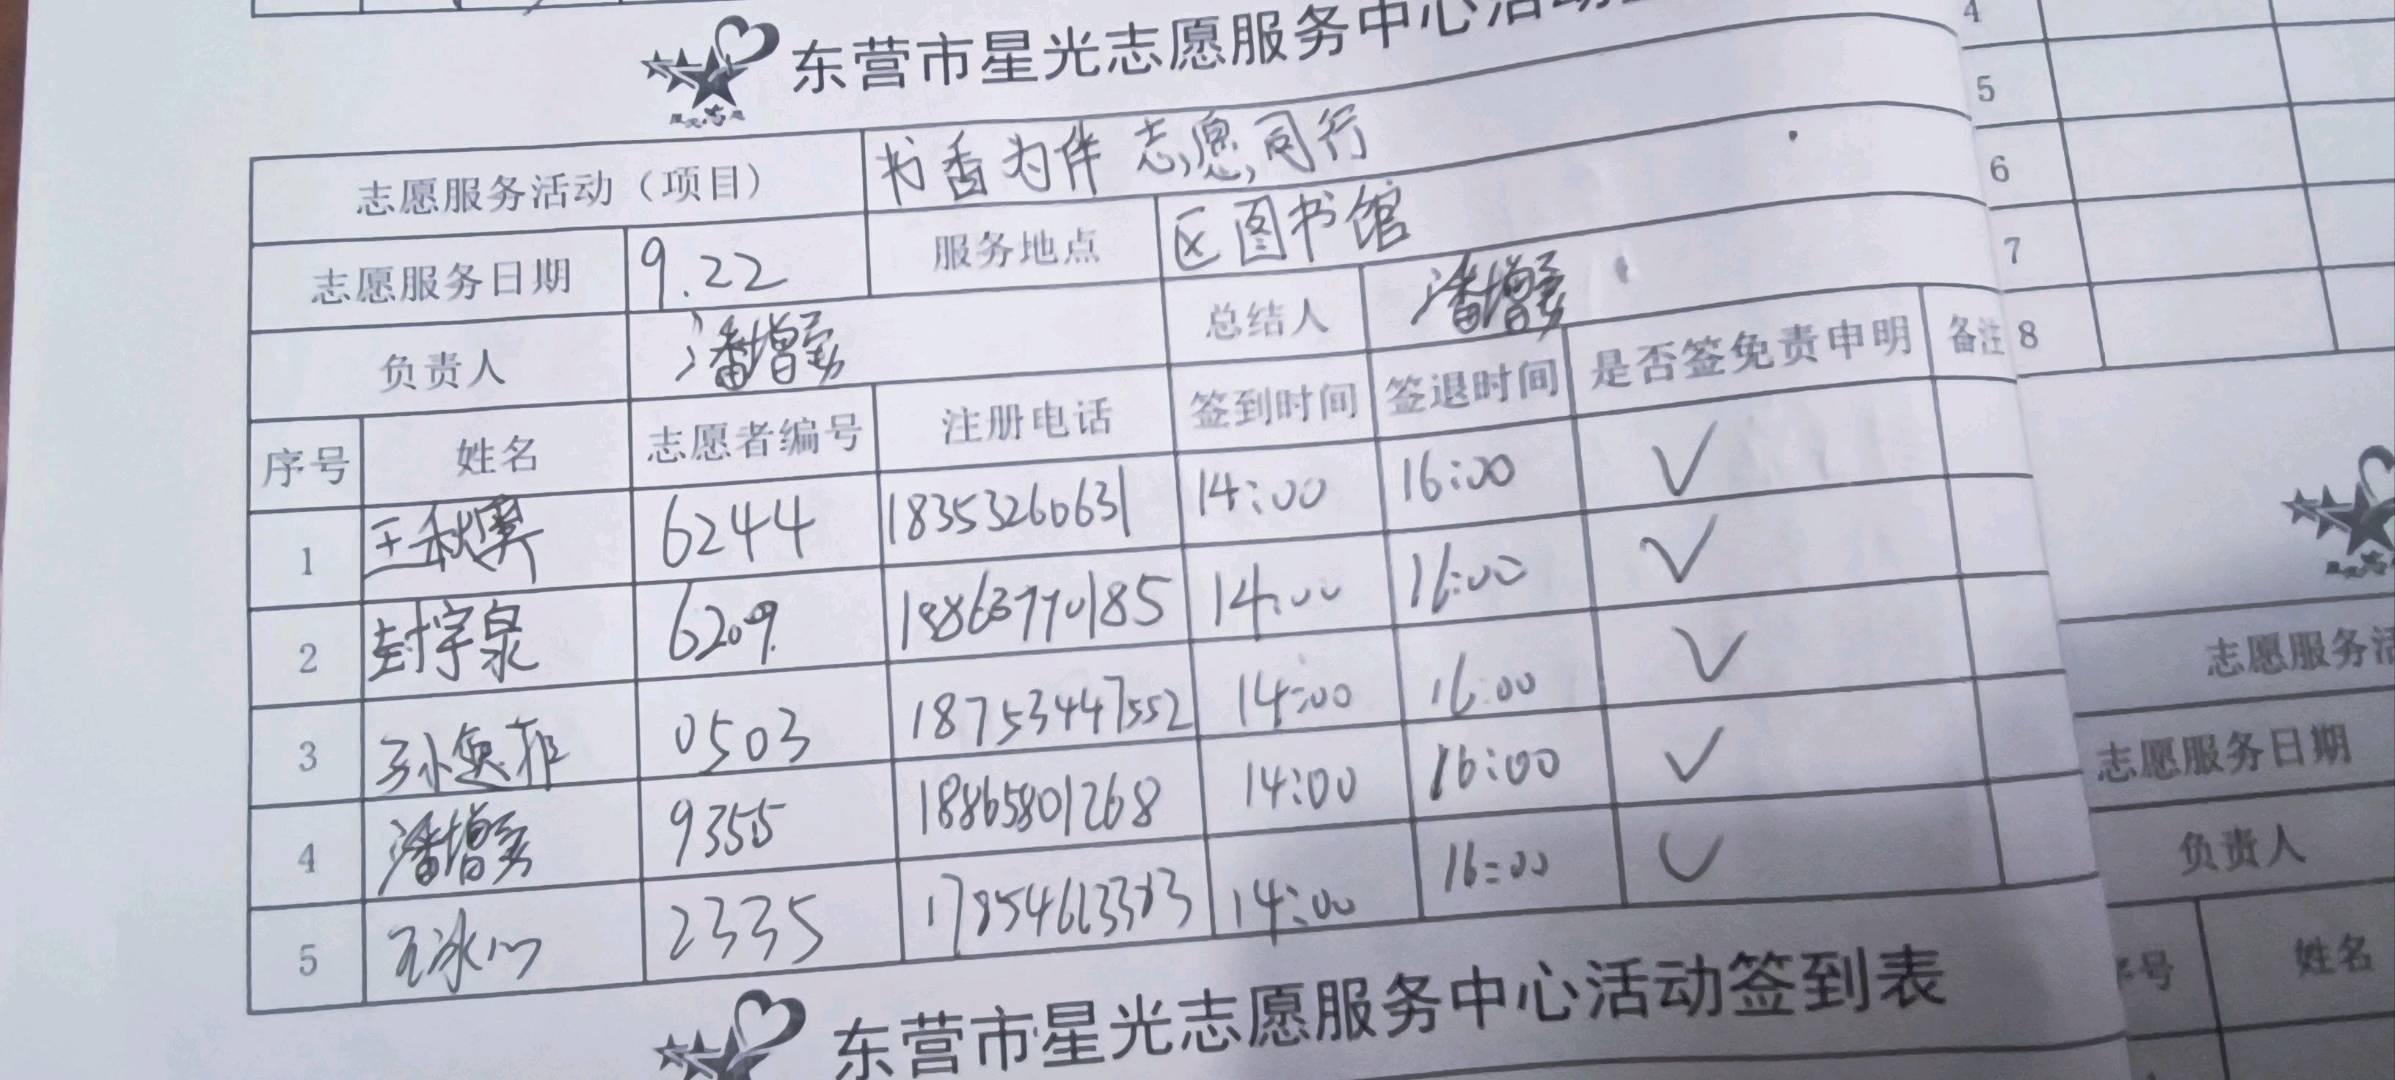 东营市星光志愿服务中心活动
志愿服务活动（项目） 书香为伴 志愿同行
志愿服务日期 9.22 服务地点 区图书馆
负责人 潘增 总结人 潘增
序号 姓名 志愿者编号 注册电话 签到时间 签退时间 是否签免责申明 备注
1 王秋 6244 18353260631 14:00 16:00 √
2 封宇泉 6209 18863770185 14:00 16:00 √
3 孙 0503 18753447552 14:00 16:00 √
4 潘增 9355 18865801268 14:00 16:00 √
5 王冰心 2335 14:00 16:00 √
东营市星光志愿服务中心活动签到表
4
5
6
7
8
志愿服务活
志愿服务日期
负责人
序号 姓名